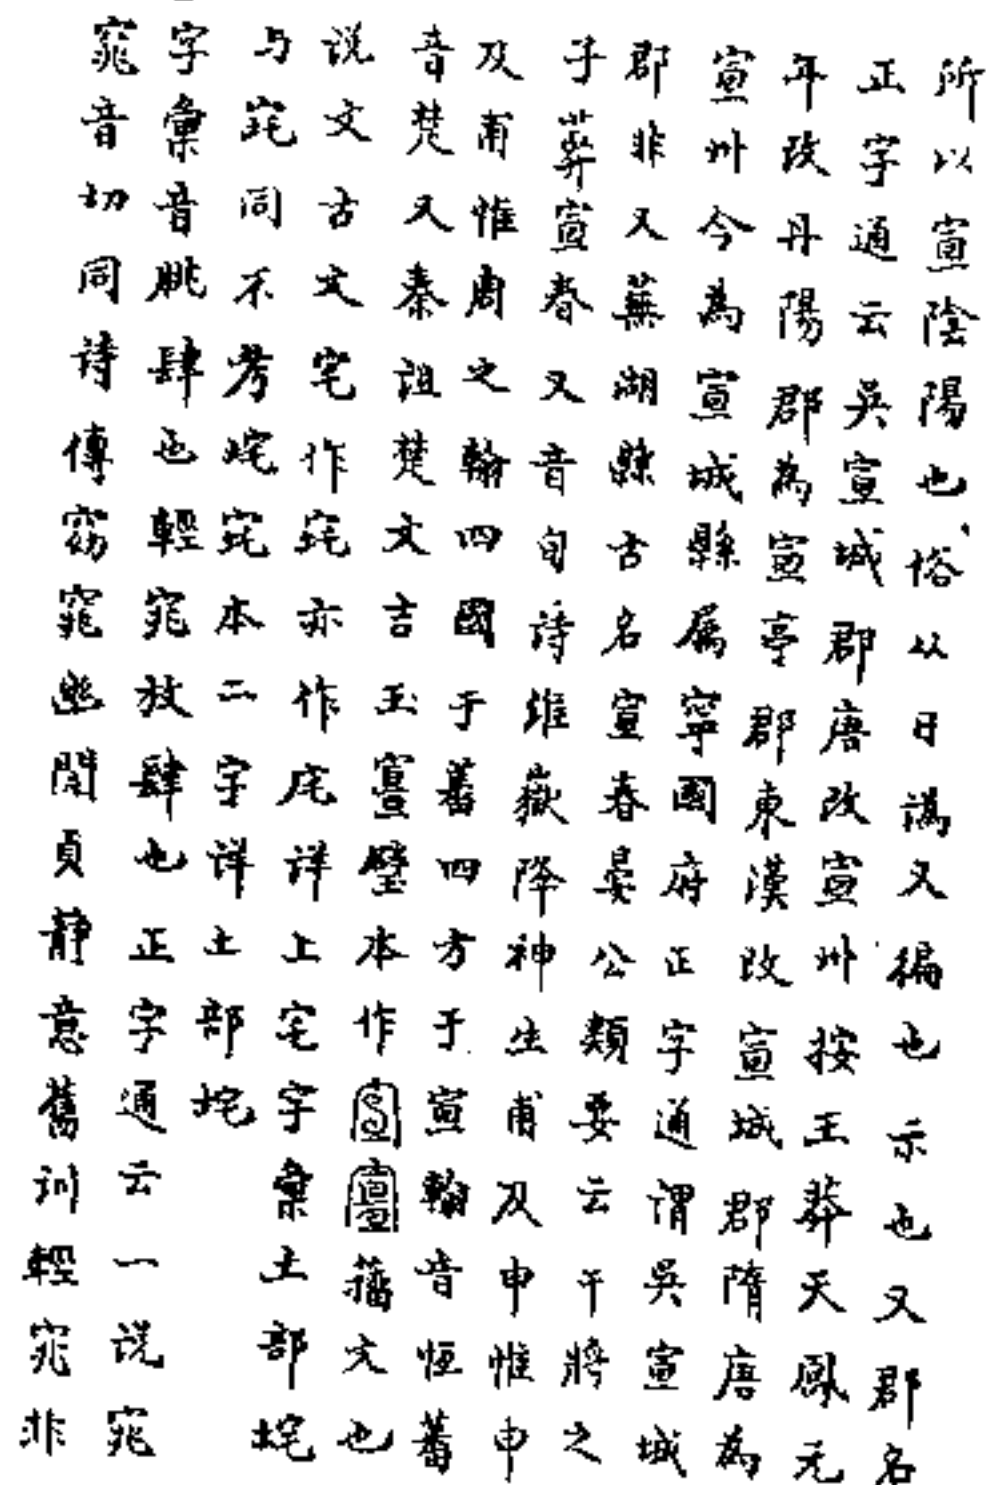 所以宣陰陽也俗从日譌又徧也示也又郡名
正字通云吳宣城郡唐改宣州按王莽天鳳元
年改丹陽郡為宣亭郡東漢改宣城郡隋唐為
宣州今為宣城縣属寧國府正字通謂吳宣城
郡非又蕪湖縣古名宣春晏公類要云干將之
子葬宣春又音旬詩維嶽降神生甫及申惟申
及甫惟周之翰四國于蕃四方于宣翰音恒蕃
音楚又秦詛楚文吉玉宣璧本作籀文也
说文古文宅作宅亦作庑详上宅字彙土部垞
与宅同不考垞宅本二字详土部垞
字彙音朓肆也輕窕放肆也正字通云一说窕
窕音切同詩傳窈窕幽閒貞靜意舊训輕窕非